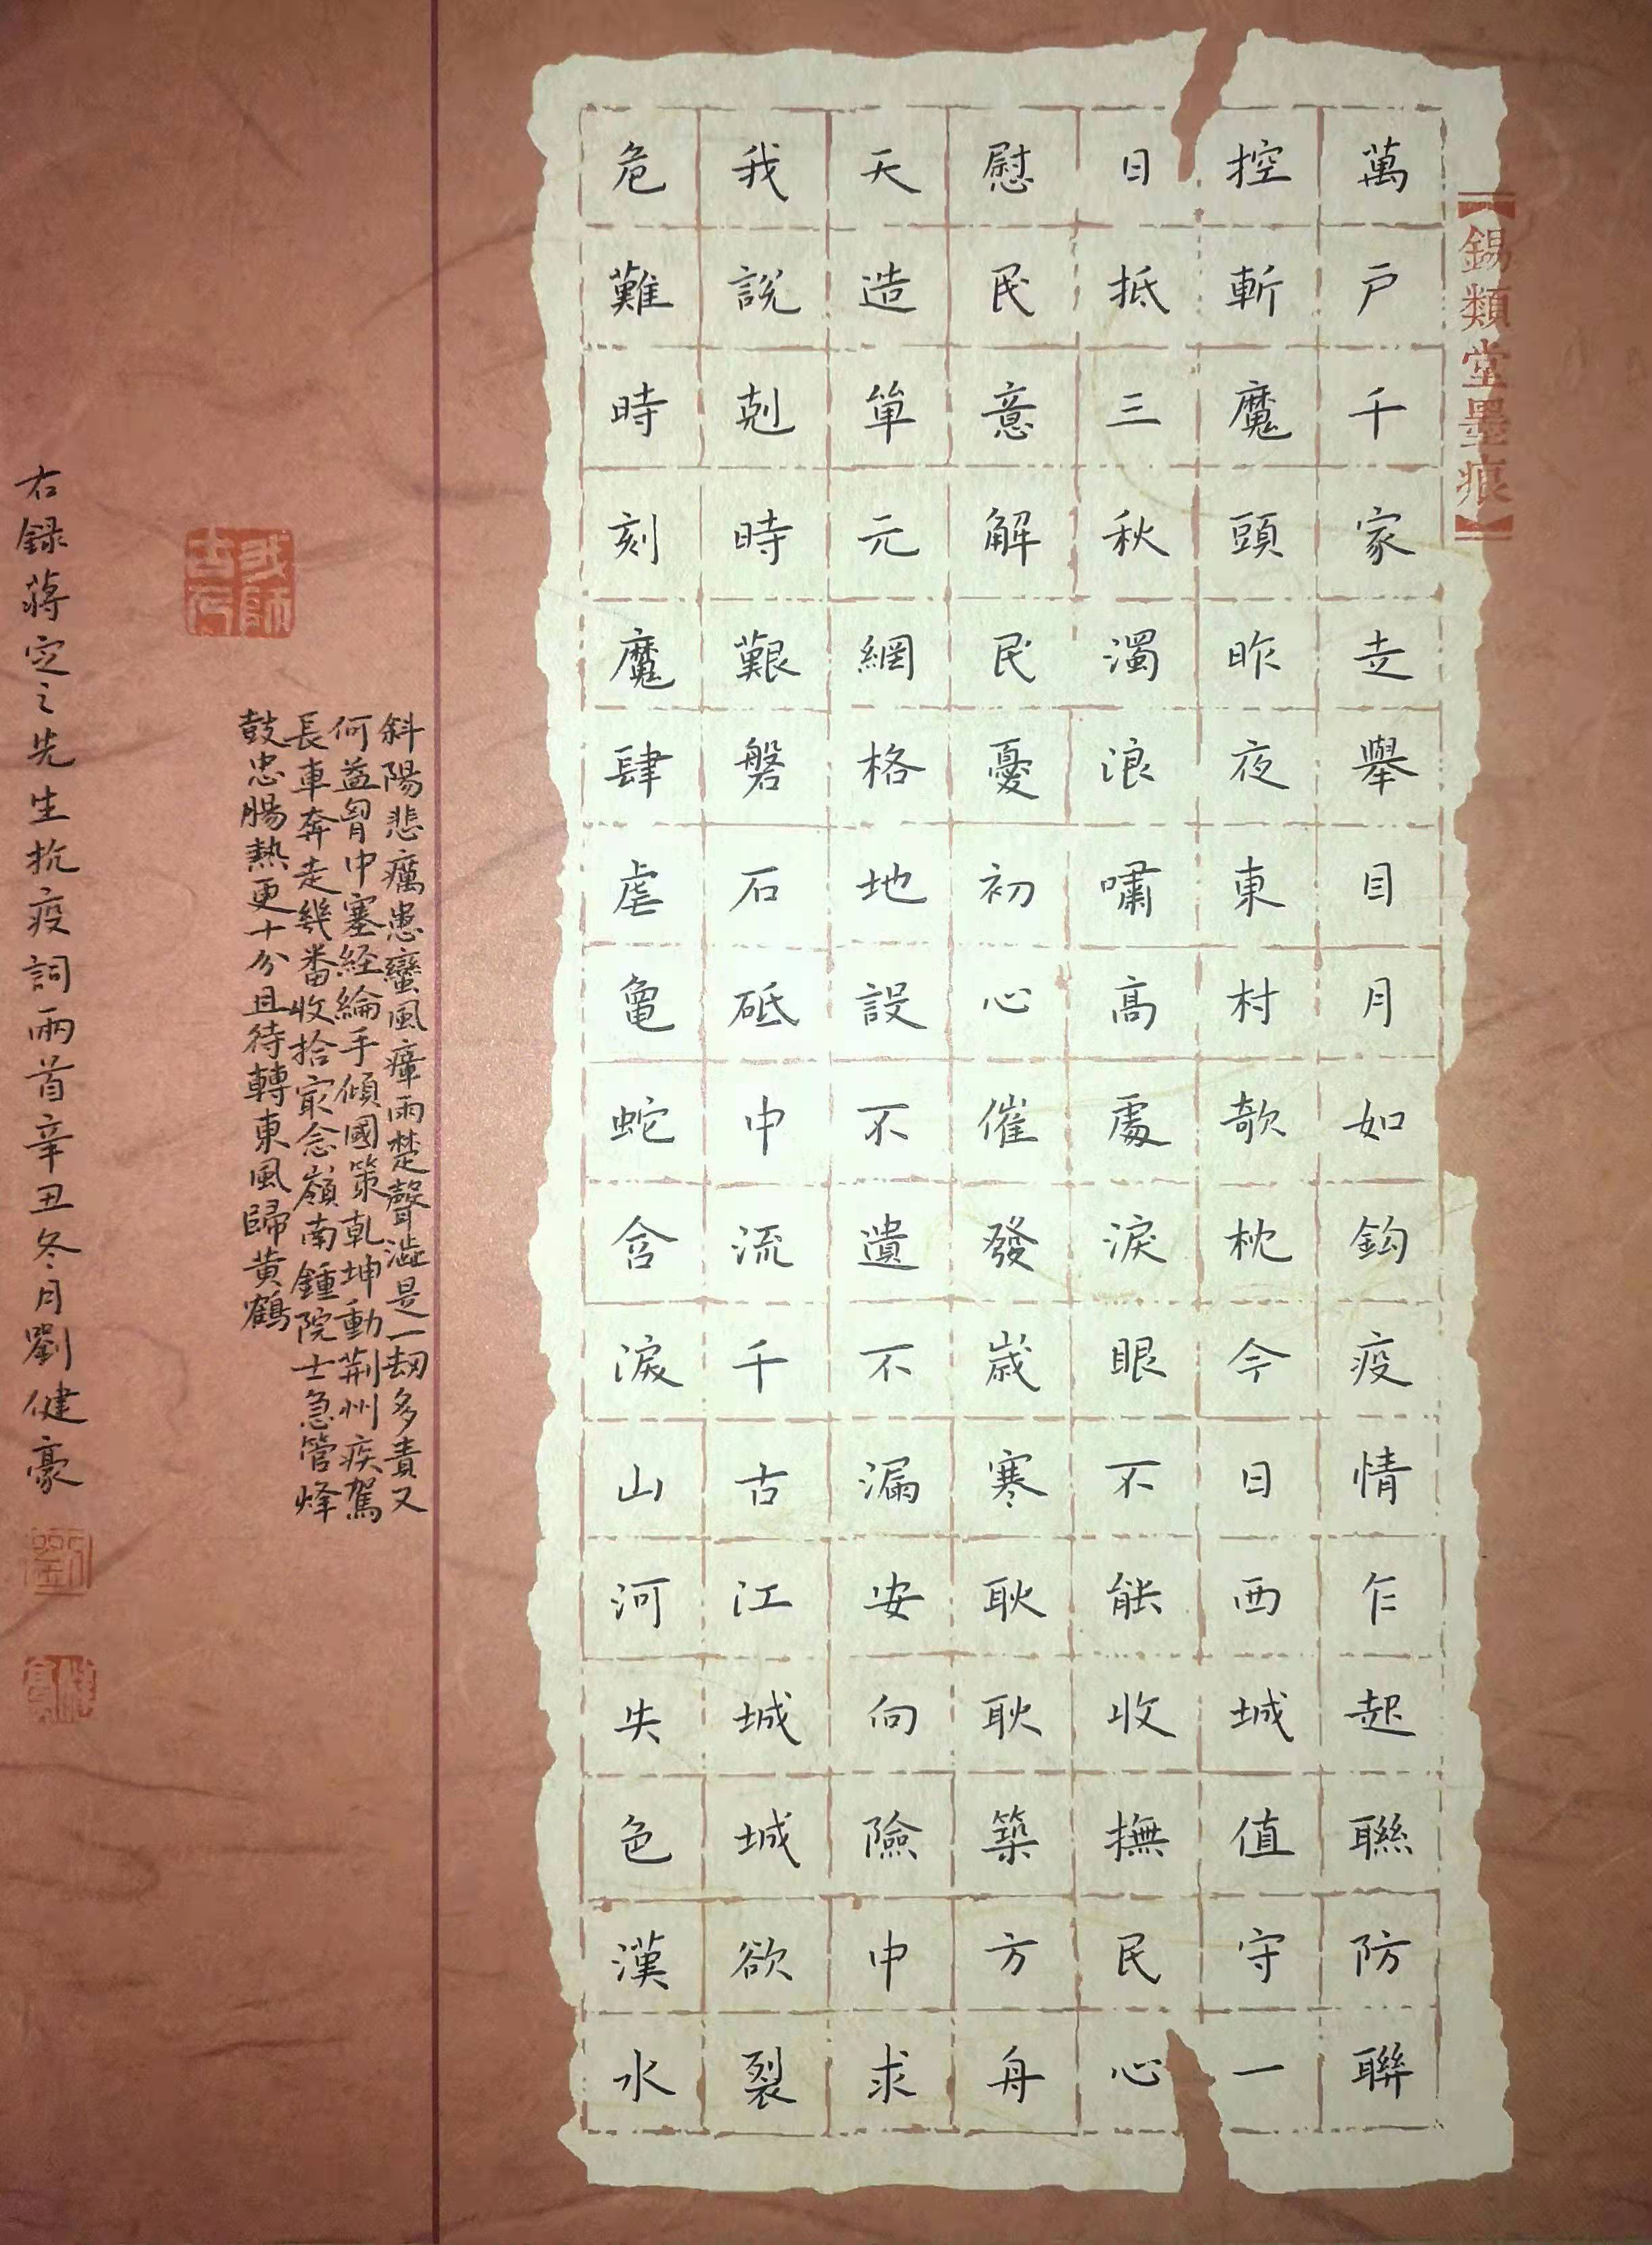 錫類堂墨痕
萬戶千家走舉目月如鈎疫情乍起聯防聯
控斬魔頭昨夜東村欹枕今日西城值守一
日抵三秋濁浪嘯高處淚眼不能收撫民心
慰民意解民憂初心催發歲寒耿耿築方舟
天造單元網格地設不遺不漏安向險中求
我說剋時艱磐石砥中流千古江城城欲裂
危難時刻魔肆虐龜蛇含淚山河失色漢水
斜陽悲癘患蠻風瘴雨楚聲澁是一劫多責又
何益胷中塞経綸手傾國策乾坤動荆州疾駕
長車奔走幾番收拾㝡念嶺南鍾院士急管烽
鼓忠腸熱更十分且待轉東風歸黃鶴
右録蔣定之先生抗疫詞兩首辛丑冬月劉健豪
劉